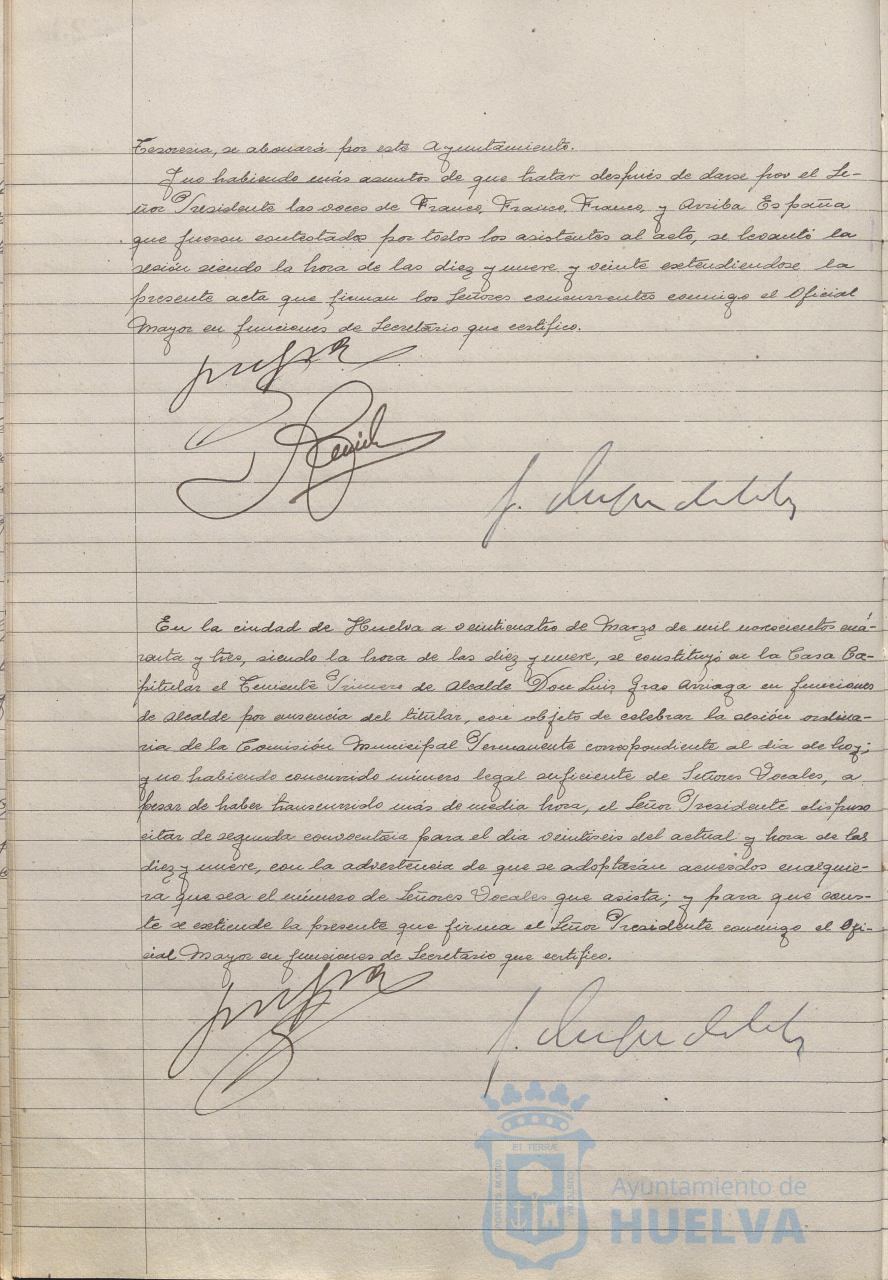 Tesorería, se abonará por este Ayuntamiento.
Y no habiendo más asuntos de que tratar después de darse por el Se-
ñor Presidente las voces de Franco, Franco, Franco, y Arriba España
que fueron contestadas por todos los asistentes al acto, se levantó la
sesión siendo la hora de las diez y nueve y veinte extendiendose la
presente acta que firman los Señores concurrentes conmigo el Oficial
Mayor en funciones de Secretario que certifico.
En la ciudad de Huelva a veinticuatro de Marzo de mil novecientos cua-
renta y tres, siendo la hora de las diez y nueve, se constituyó en la Casa Ca-
pitular el Teniente Primero de Alcalde Don Luis Grao Arriaga en funciones
de Alcalde por ausencia del titular, con objeto de celebrar la sesión ordina-
ria de la Comisión Municipal Permanente correspondiente al día de hoy;
y no habiendo concurrido número legal suficiente de Señores Vocales, a
pesar de haber transcurrido más de media hora, el Señor Presidente dispuso
citar de segunda convocatoria para el día veintiseis del actual y hora de las
diez y nueve, con la advertencia de que se adoptarán acuerdos cualquie-
ra que sea el número de Señores Vocales que asista; y para que cons-
te se extiende la presente que firma el Señor Presidente conmigo el Ofi-
cial Mayor en funciones de Secretario que certifico.
PORTUS MARIS ET TERRAE CUSTODIA
Ayuntamiento de
HUELVA